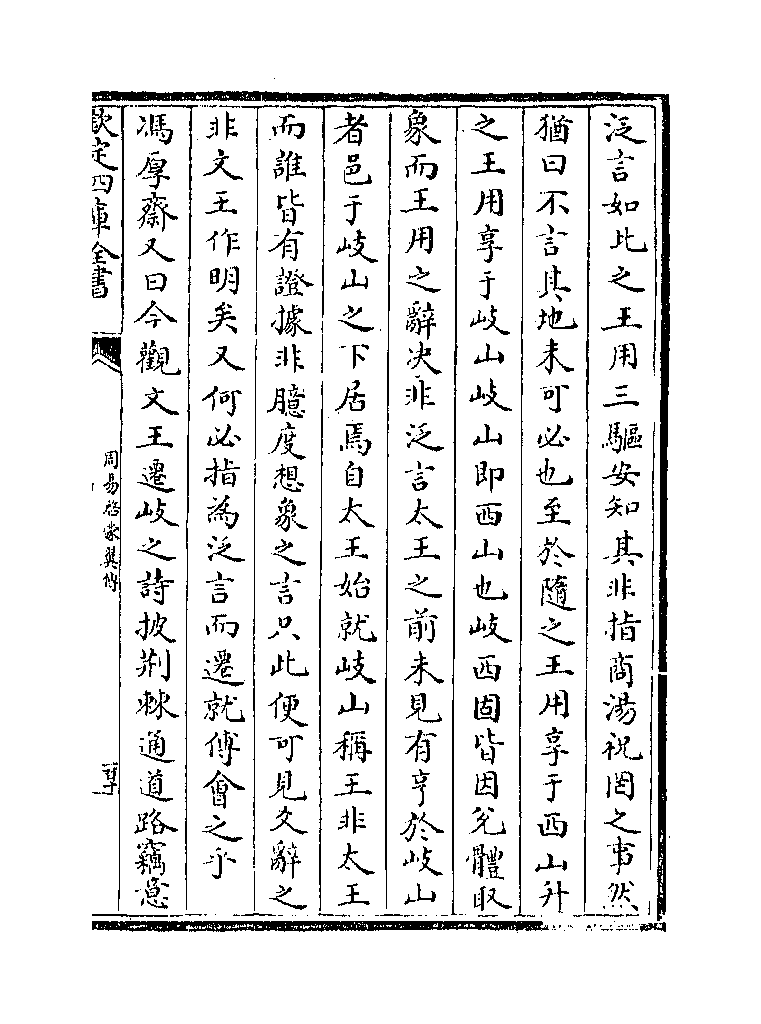 泛言如比之王用三驅安知其非指商湯祝罔之事然
猶曰不言其地未可必也至於隨之王用享于西山升
之王用享于岐山岐山即西山也岐西固皆因兊體取
象而王用之辭决非泛言太王之前未見有亨於岐山
者邑于岐山之下居焉自太王始就岐山稱王非太王
而誰皆有證據非臆度想象之言只此便可見爻辭之
非文王作明矣又何必指為泛言而遷就傅會之乎
馮厚齋又曰今觀文王遷岐之詩披荆棘通道路竊意
欽定四庫全書
周易啓蒙翼傳